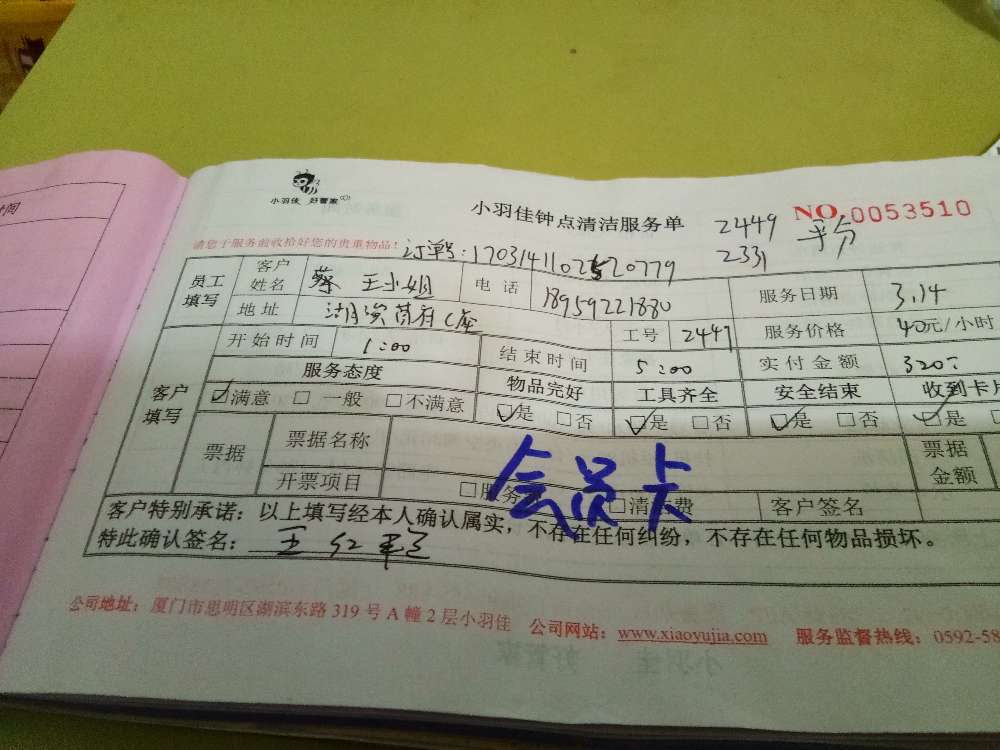 小羽佳 好管家
小羽佳钟点清洁服务单
NO.0053510
2449 平分
2331
请您于服务前收拾好您的贵重物品!
订单号:1703141102520779
员工填写 客户姓名 蔡 王小姐 电话 18959221880 服务日期 3.14
地址 湖滨 工号 2447 服务价格 40元/小时
客户填写 开始时间 1:00 结束时间 5:00 实付金额 320元
服务态度 物品完好 工具齐全 安全结束 收到卡片
☑满意 □一般 □不满意 ☑是 □否 ☑是 □否 ☑是 □否 ☑是
票据 票据名称 票据金额
会员卡
开票项目 □服务费 □清洁费 客户签名
客户特别承诺:以上填写经本人确认属实,不存在任何纠纷,不存在任何物品损坏。
特此确认签名: 王红
公司地址:厦门市思明区湖滨东路319号A幢2层小羽佳 公司网站:www.xiaoyujia.com 服务监督热线:0592-58